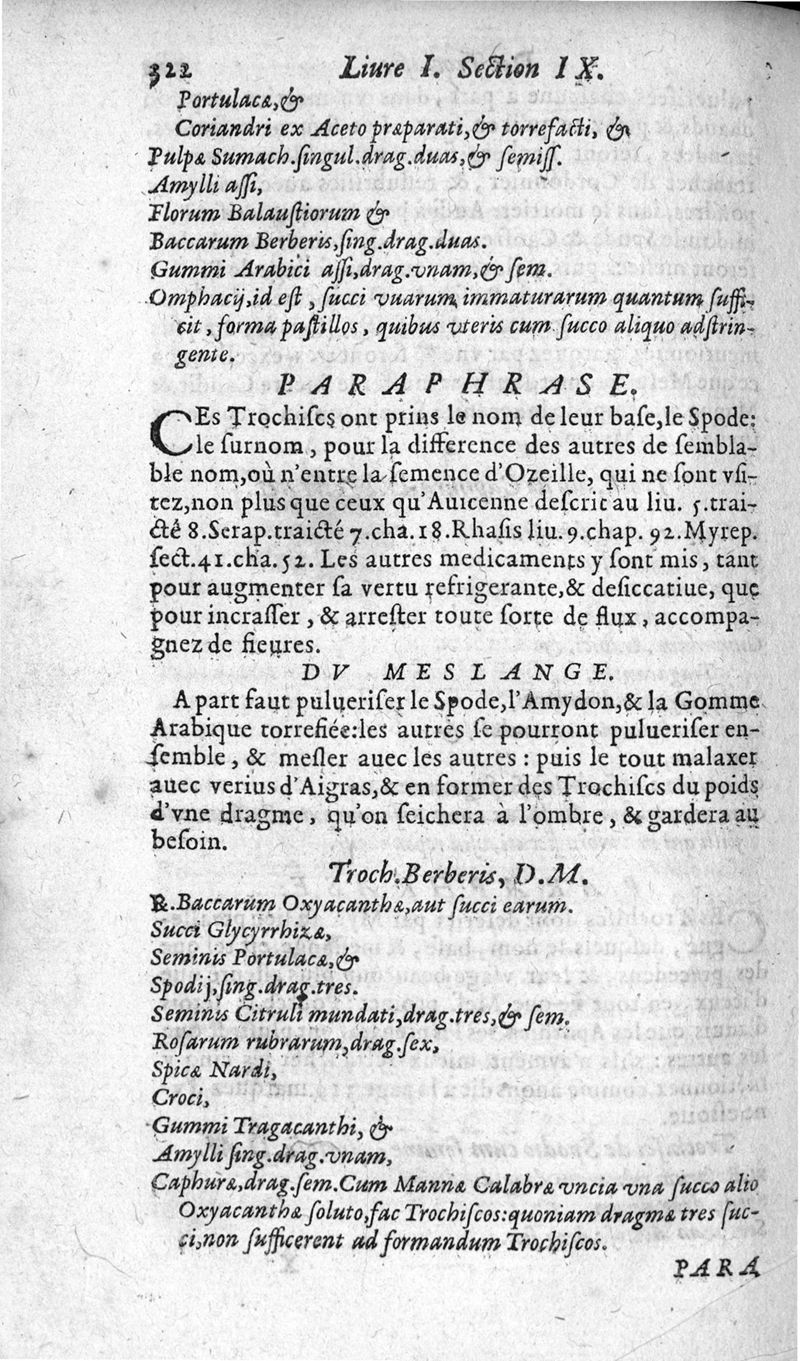 322 Liure I. Section IX.
Portulacæ,&
Coriandri ex Aceto præparati,& torrefacti, &
Pulpæ Sumach.ſingul.drag.duas,& ſemiſſ.
Amylli aſſi,
Florum Balauſtiorum &
Baccarum Berberis,ſing.drag.duas.
Gummi Arabici aſſi,drag.vnam,& ſem.
Omphacij,id eſt, ſucci vuarum immaturarum quantum ſuffi-
cit, forma paſtillos, quibus vteris cum ſucco aliquo adſtrin-
gente.
PARAPHRASE.
CEs Trochiſcs ont prins le nom de leur baſe,le Spode:
le ſurnom, pour la difference des autres de ſembla-
ble nom,où n'entre la ſemence d'Ozeille, qui ne ſont vſi-
tez,non plus que ceux qu'Auicenne deſcrit au liu. 5.trai-
cté 8.Serap.traicté 7.cha.18.Rhaſis liu.9.chap. 92.Myrep.
ſect.41.cha.52. Les autres medicaments y ſont mis, tant
pour augmenter ſa vertu refrigerante,& deſiccatiue, que
pour incraſſer, & arreſter toute ſorte de flux, accompa-
gnez de fieures.
DV MESLANGE.
A part faut puluerifer le Spode,l'Amydon,& la Gomme
Arabique torrefiée:les autres ſe pourront pulueriſer en-
ſemble, & meſler auec les autres : puis le tout malaxer
auec verius d'Aigras,& en former des Trochiſcs du poids
d'vne dragme, qu'on ſeichera à l'ombre, & gardera au
beſoin.
Troch.Berberis, D.M.
℞.Baccarum Oxyacanthæ,aut ſucci earum.
Succi Glycyrrhizæ,
Seminis Portulacæ,&
Spodij,ſing.drag.tres.
Seminis Citruli mundati,drag.tres,& ſem.
Roſarum rubrarum,drag.ſex,
Spicæ Nardi,
Croci,
Gummi Tragacanthi, &
Amylli ſing.drag.vnam,
Caphuræ,drag.ſem.Cum Manna Calabræ vncia vna ſucco alio
Oxyacanthæ ſoluto,fac Trochiſcos:quoniam dragmæ tres ſuc-
ci,non ſufficerent ad formandum Trochiſcos.
PARA